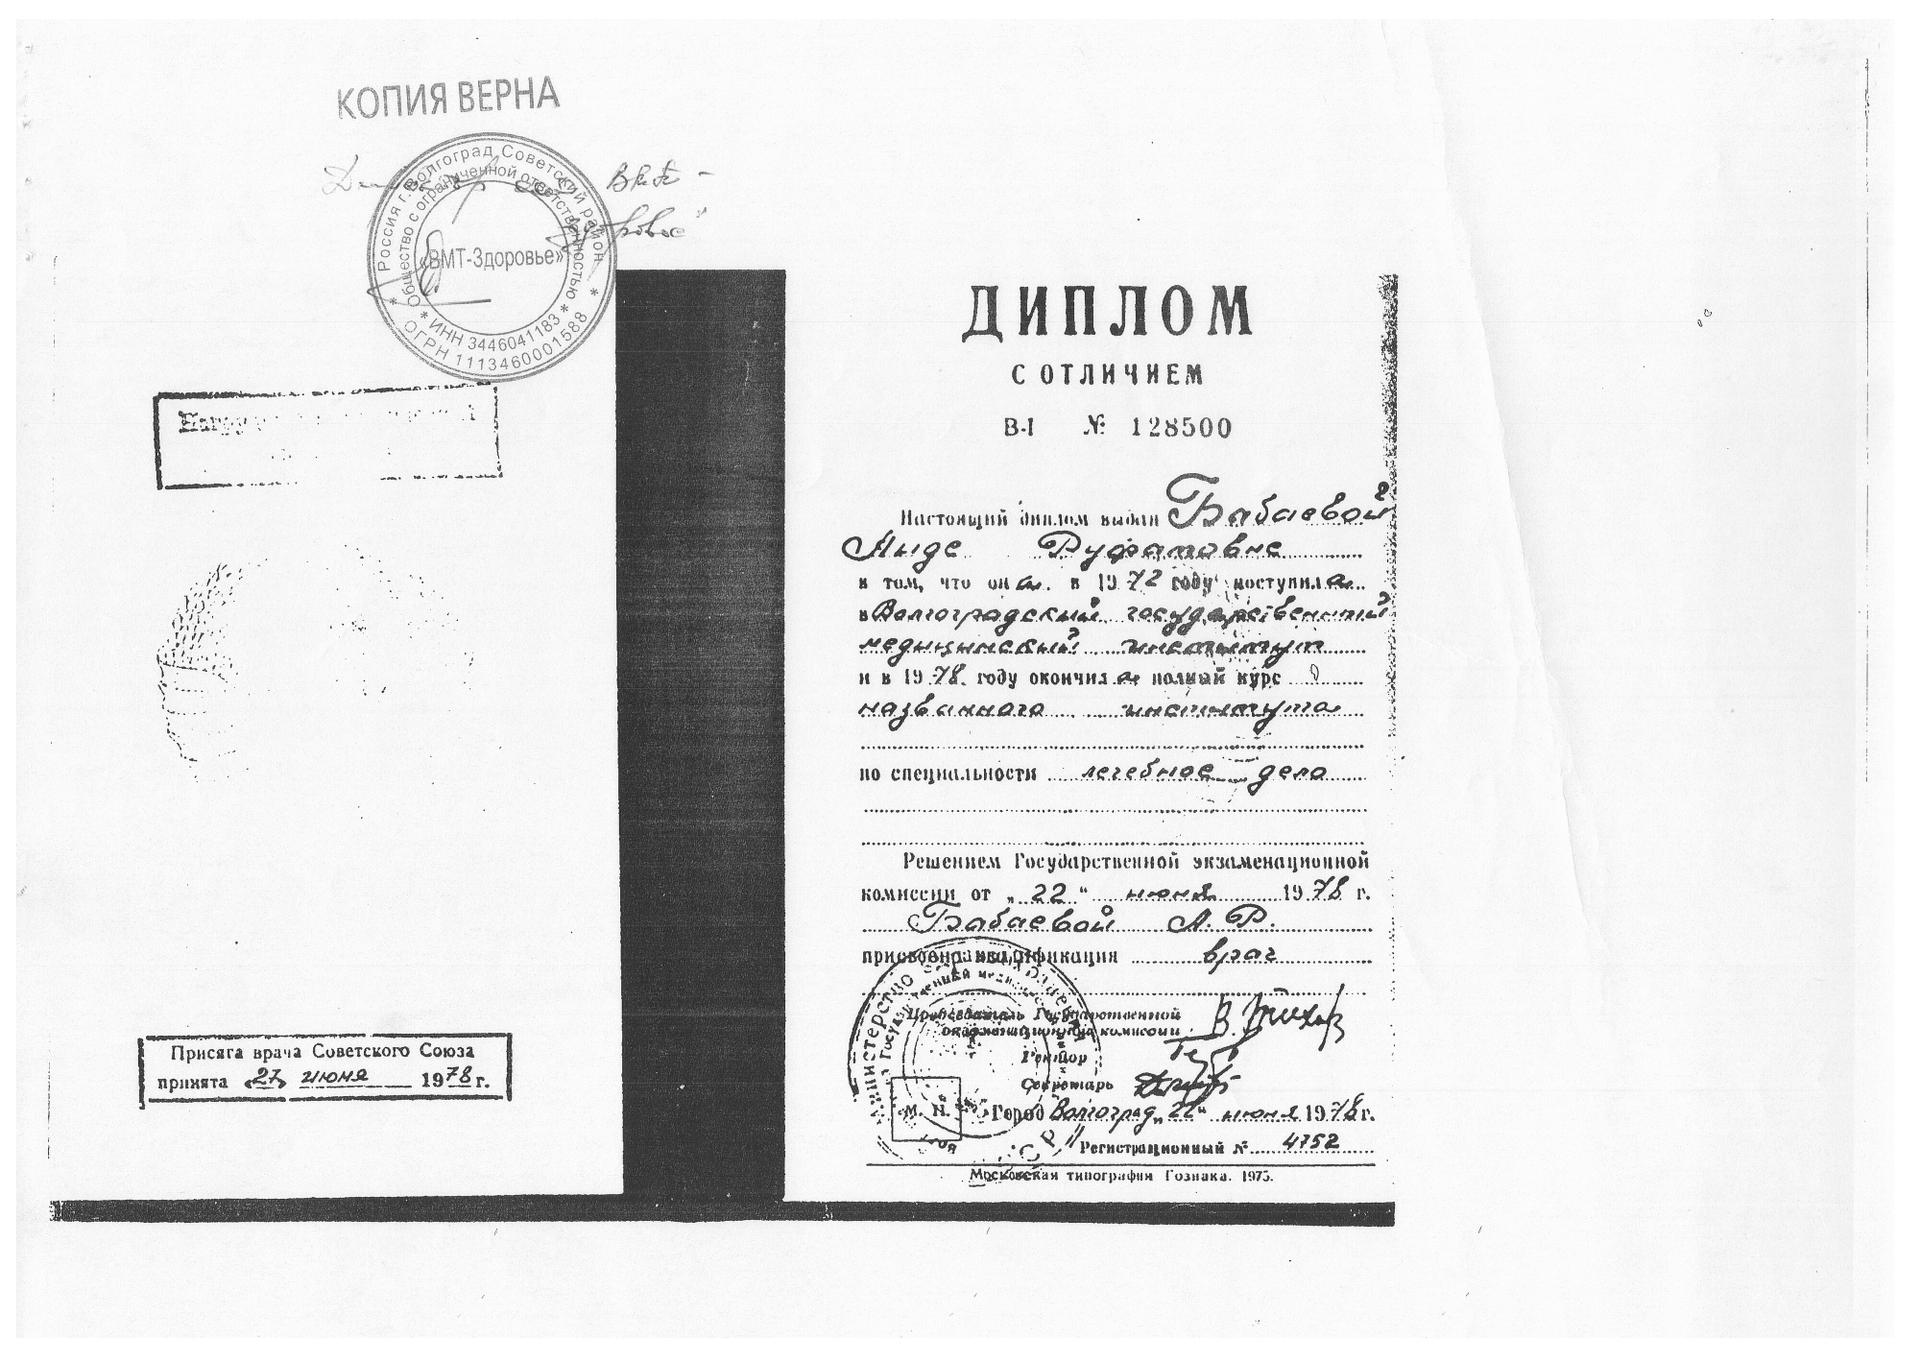 КОПИЯ ВЕРНА
Россия г. Волгоград Советский район
Общество с ограниченной ответственностью
«ВМТ-Здоровье»
* ИНН 3446041183 *
* ОГРН 1113460001588 *
Присяга врача Советского Союза
принята 27 июня 1978 г.
ДИПЛОМ
С ОТЛИЧИЕМ
В-I № 128500
Настоящий диплом выдан Бабаевой
Аиде Руфатовне
в том, что она в 1972 году поступила
в Волгоградский государственный
медицинский институт
и в 1978 году окончила полный курс
названного института
по специальности лечебное дело
Решением Государственной экзаменационной
комиссии от „22“ июня 1978 г.
Бабаевой А. Р.
присвоена квалификация врач
Председатель Государственной
экзаменационной комиссии
Ректор
Секретарь
М. П.
Город Волгоград „22“ июня 1978 г.
Регистрационный № 4752
Московская типография Гознака. 1975.